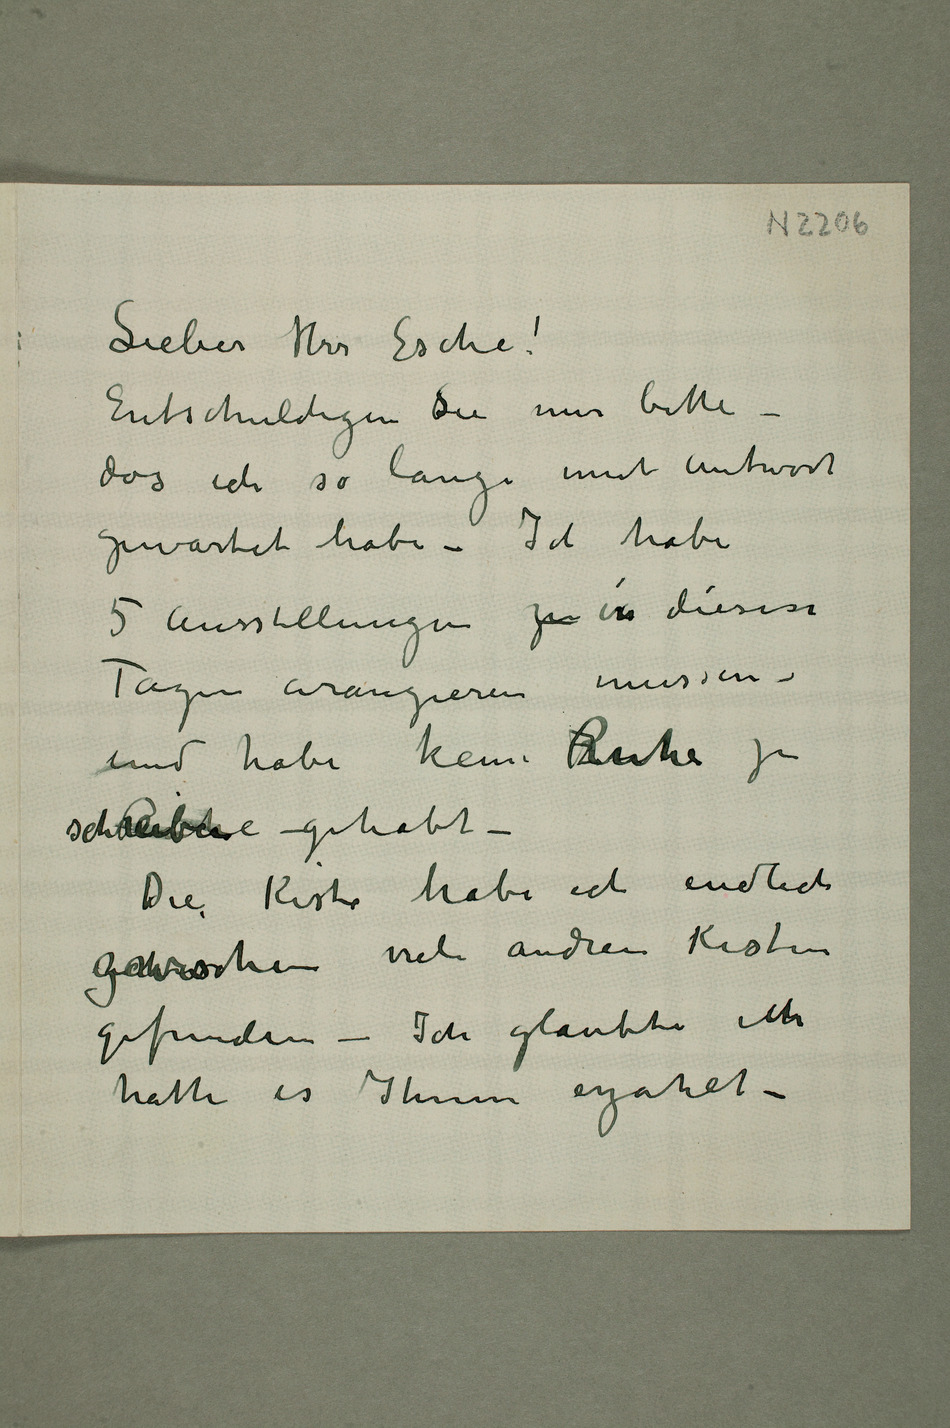 N 2206
Lieber Herr Esche!
Entschuldigen Sie mir bitte –
das ich so lange mit Antwort
gewartet habe – Ich habe
5 Ausstellungen zu in diesen
Tagen arangieren müssen –
und habe keine Ruhe zu
schreibene gehabt –
Die Kiste habe ich endlich
zwischen viele andren Kisten
gefunden – Ich glaubte ich
hatte es Ihnen erzahlt –